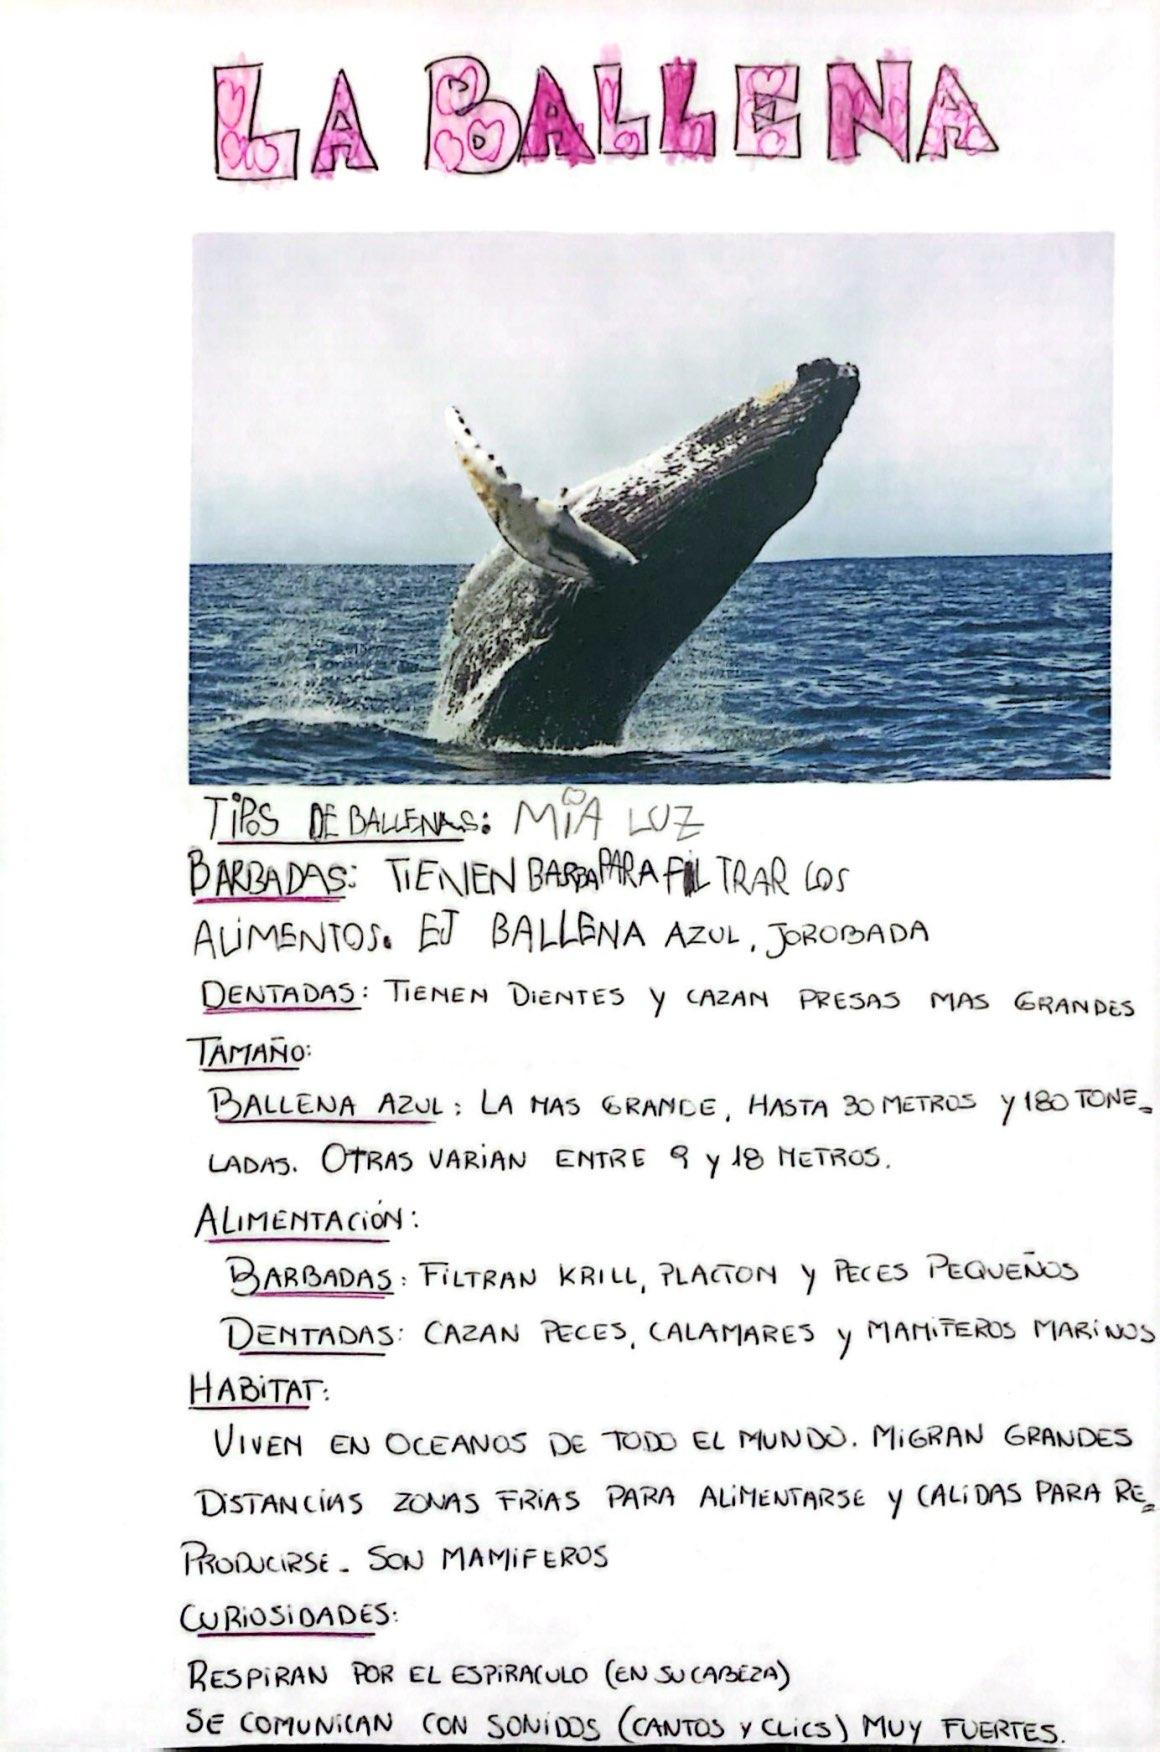 LA BALLENA
TIPOS DE BALLENAS: MIA LUZ
BARBADAS: TIENEN BARBA PARA FILTRAR LOS
ALIMENTOS. EJ BALLENA AZUL, JOROBADA
DENTADAS: TIENEN DIENTES Y CAZAN PRESAS MAS GRANDES
TAMAÑO:
BALLENA AZUL: LA MAS GRANDE, HASTA 30 METROS Y 180 TONE_
LADAS. OTRAS VARIAN ENTRE 9 Y 18 METROS.
ALIMENTACIÓN:
BARBADAS: FILTRAN KRILL, PLACTON Y PECES PEQUEÑOS
DENTADAS: CAZAN PECES, CALAMARES Y MAMIFEROS MARINOS
HABITAT:
VIVEN EN OCEANOS DE TODO EL MUNDO. MIGRAN GRANDES
DISTANCIAS ZONAS FRIAS PARA ALIMENTARSE Y CALIDAS PARA RE_
PRODUCIRSE. SON MAMIFEROS
CURIOSIDADES:
RESPIRAN POR EL ESPIRACULO (EN SU CABEZA)
SE COMUNICAN CON SONIDOS (CANTOS Y CLICS) MUY FUERTES.